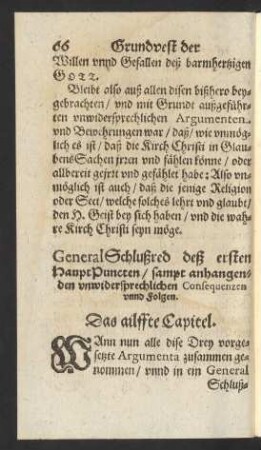 66 Grundvest der
Willen vnnd Gefallen deß barmhertzigen
GOTT.
Bleibt also auß allen disen bißhero bey-
gebrachten / vnd mit Grunde außgeführ-
ten vnwidersprechlichen Argumenten
vnd Bewehrungen war / daß / wie vnmög-
lich es ist / daß die Kirch Christi in Glau-
bens Sachen jrren vnd fählen könne / oder
allbereit gejrrt vnd gefählet habe: Also vn-
möglich ist auch / daß die jenige Religion
oder Sect / welche solches lehrt vnd glaubt /
den H. Geist bey sich haben / vnd die wah-
re Kirch Christi seyn möge.
General Schlußred deß ersten
Haupt Puncten / sampt anhangen-
den vnwidersprechlichen Consequenzen
vnnd Folgen.
Das ailffte Capitel.
WAnn nun alle dise Drey vorge-
setzte Argumenta zusammen ge-
nommen / vnnd in ein General
Schluß-